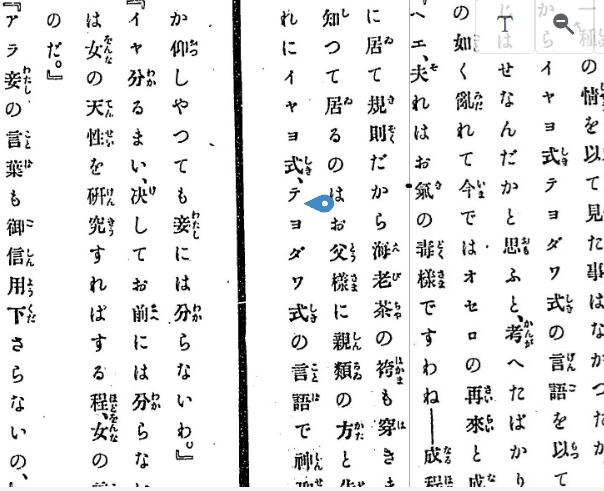 一種の情を以て見た事はなかつた
からイヤヨ式テヨダワ式の言語を以て
じはせなんだかと思ふと、考へたばかり
の如く亂れて今ではオセロの再來と成
ヘエ、夫れはお氣の毒樣ですわね――成程
に居て規則だから海老茶の袴も穿きま
知つて居るのはお父樣に親類の方と
れにイヤヨ式、テヨダワ式の言語で神
か仰しやつても妾には分らないわ。』
『イヤ分るまい、決してお前には分らな
は女の天性を研究すればする程、女の
のだ。』
『アラ妾の言葉も御信用下さらないの、